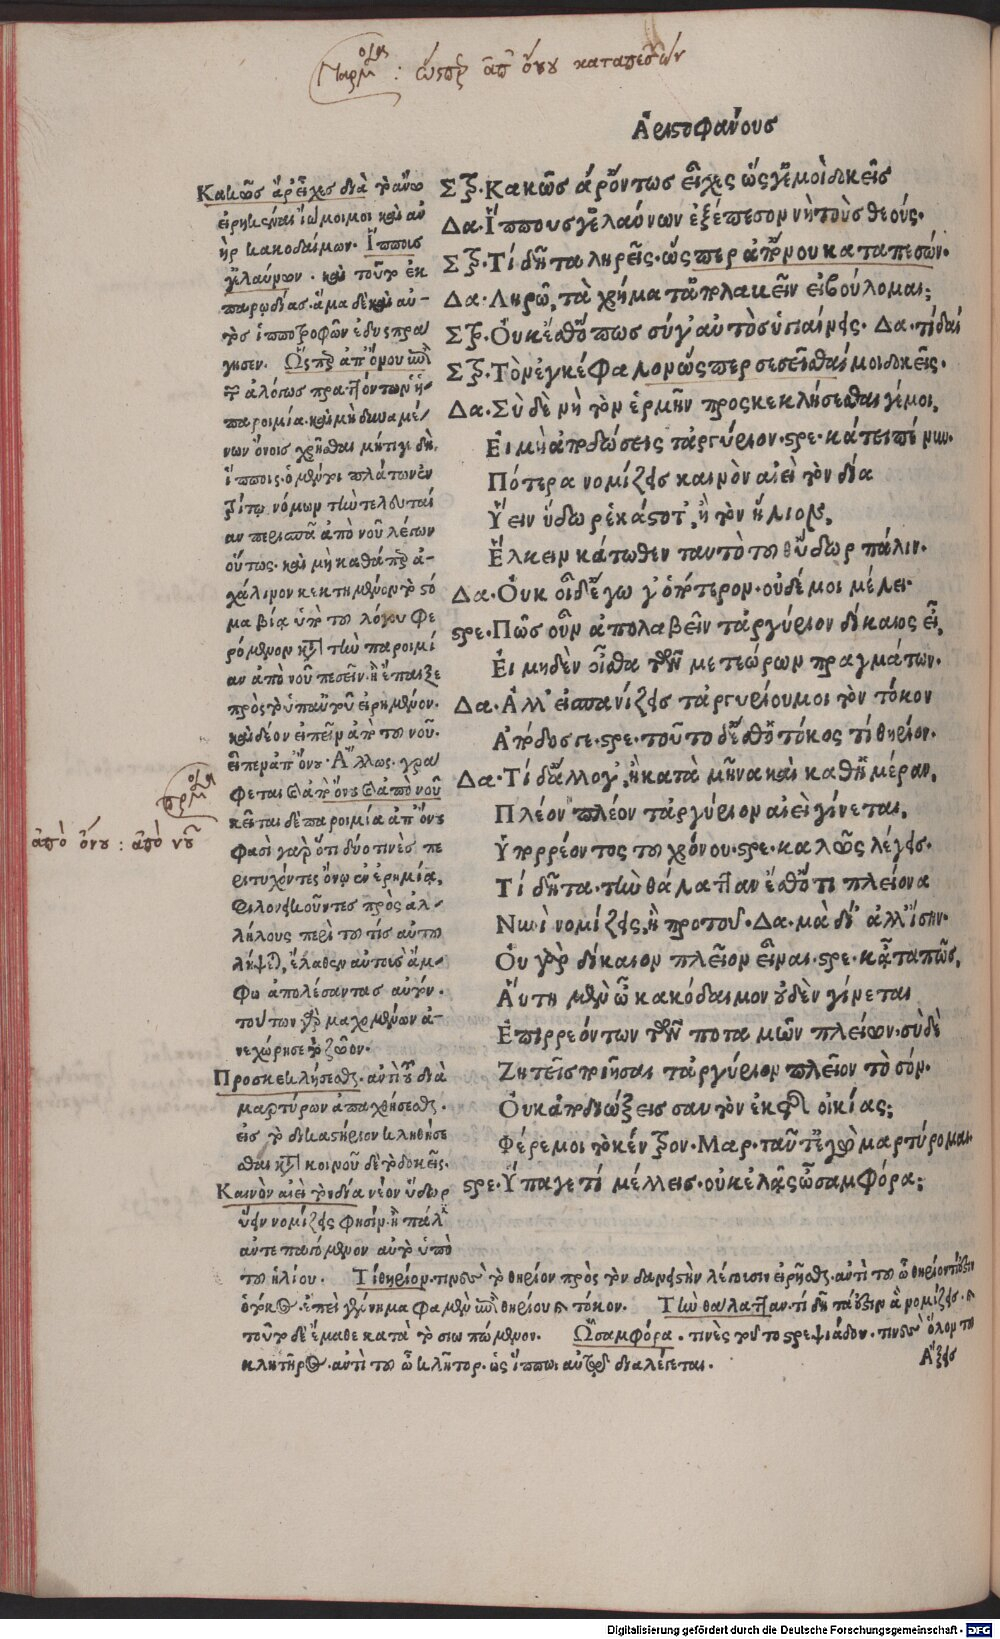 Παροιμία : ὥσπερ ἀπ' ὄνου καταπεσών
Ἀριστοφάνους
Στρ. Κακῶς ἄρ' ὄντως εἶχες ὥς γ' ἐμοὶ δοκεῖς
Δα. Ἵππους γ' ἐλαύνων ἐξέπεσον νὴ τοὺς θεούς.
Στρ. Τί δῆτα ληρεῖς. ὥσπερ ἀπ' ὄνου καταπεσών.
Δα. Ληρῶ, τὰ χρήματ' ἀπολαβεῖν εἰ βούλομαι;
Στρ. Οὐκ ἔσθ' ὅπως σύ γ' αὐτὸς ὑγιαίνεις. Δα. τί δαί
Στρ. Τὸν ἐγκέφαλον ὥσπερ σεσεῖσθαί μοι δοκεῖς.
Δα. Σὺ δὲ νὴ τὸν ἑρμῆν προσκεκλήσεσθαι γ' ἐμοί,
Εἰ μὴ ἀποδώσεις τἀργύριον. στρε. κάτειπέ νυν.
Πότερα νομίζεις καινὸν αἰεὶ τὸν δία
Ὕειν ὕδωρ ἑκάστοτ', ἢ τὸν ἥλιον,
Ἕλκειν κάτωθεν ταυτὸ τοῦθ' ὕδωρ πάλιν.
Δα. Οὐκ οἶδ' ἔγωγ' ὁπότερον. οὐδέ μοι μέλει.
στρε. Πῶς οὖν ἀπολαβεῖν τἀργύριον δίκαιος εἶ,
Εἰ μηδὲν οἶσθα τῶν μετεώρων πραγμάτων.
Δα. Ἀλλ' εἰ σπανίζεις τἀργυρίου μοι τὸν τόκον
Ἀπόδοσγε. στρε. τοῦτο δ' ἔσθ' ὁ τόκος τί θηρίον.
Δα. Τί δ' ἄλλο γ', ἢ κατὰ μῆνα καὶ καθ' ἡμέραν,
Πλέον πλέον τἀργύριον αἰεὶ γίνεται,
Ὑπορρέοντος τοῦ χρόνου. στρε. καλῶς λέγεις.
Τί δῆτα. τὴν θάλατταν ἔσθ' ὅτι πλείονα
Νυνὶ νομίζεις, ἢ προτοῦ. Δα. μὰ δί' ἀλλ' ἴσην.
Οὐ γὰρ δίκαιον πλεῖον εἶναι. στρε. κᾆτα πῶς,
Αὕτη μὲν ὦ κακόδαιμον οὐδὲν γίνεται
Ἐπιρρεόντων τῶν ποταμῶν πλείων. σὺ δὲ
Ζητεῖς ποιῆσαι τἀργύριον πλεῖον τὸ σόν.
Οὐκ ἀποδιώξεις σαυτὸν ἐκ τῆς οἰκίας;
Φέρε μοι τὸ κέντρον. Μαρ. ταῦτ' ἐγὼ μαρτύρομαι.
στρε. Ὕπαγε τί μέλλεις. οὐκ ἐλᾷς ὦ σαμφόρα;
Κακῶς ἄρ' εἶχες διὰ τὸ ἄνω
εἰρηκέναι ἰώ μοι μοι καὶ ἀνὴρ
κακοδαίμων. Ἵπποις
γ' ἐλαύνων. καὶ τοῦτο ἐκ
παρῳδίας. ἅμα δὲ καὶ αὐτὸς
ἱπποτροφῶν ἐδυσπράγησεν.
Ὥσπερ ἀπ' ὄνου ἐπὶ
τῶν ἀλόγως πραττόντων ἡ
παροιμία. καὶ μὴ δυναμένων
ὄνοις χρῆσθαι μήτι γε δὴ
ἵπποις. ὁ μέντοι πλάτων ἐν
τρίτῳ νόμων τὴν τελευταίαν
περισπᾷ ἀπὸ νοῦ λέγων
οὕτως. καὶ μὴ καθάπερ ἀχάλινον
κεκτημένον τὸ στόμα
βίᾳ ὑπὸ τοῦ λόγου φερόμενον
κατὰ τὴν παροιμίαν
ἀπὸ νοῦ πεσεῖν. ἢ ἔπαιξε
πρὸς τὸ ὑπ' αὐτοῦ εἰρημένον.
καὶ δέον εἰπεῖν ἀπὸ τοῦ νοῦ.
εἶπεν ἀπ' ὄνου. Ἄλλως. γράφεται
καὶ ἀπὸ ὄνου καὶ ἀπὸ νοῦ
κεῖται δὲ παροιμία ἀπ' ὄνου
φασὶ γὰρ ὅτι δύο τινὲς περιτυχόντες
ὄνῳ ἐν ἐρημίᾳ,
φιλονεικοῦντες πρὸς ἀλλήλους
περὶ τοῦ τίς αὐτὸν
λήψεται, ἔλαθεν αὐτοὺς ἄμφω
ἀπολέσαντας αὐτόν.
τούτων γὰρ μαχομένων ἀνεχώρησε
τὸ ζῷον.
παροιμία
ἀπὸ ὄνου : ἀπὸ νοῦ
Προσκεκλήσεσθαι. ἀντὶ τοῦ διὰ
μαρτύρων ἀπαχθήσεσθαι.
εἰς τὸ δικαστήριον κληθήσεσθαι
κατὰ κοινοῦ δὲ τὸ δοκεῖς.
Καινὸν αἰεὶ τὸν δία νέον ὕδωρ
ὕειν νομίζεις φησίν. ἢ πάλιν
τοῦ ἡλίου. Τί θηρίον.
οὕτως. ἐπεὶ γέννημα φαμὲν ἐπὶ θηρίου καὶ τόκον. Τὴν θάλατταν.
τοῦτο δὲ ἔμαθε κατὰ τὸ σιωπώμενον. Ὦ σαμφόρα.
κλητῆρος. ἀντὶ τοῦ ὦ κλῆτορ. ὡς ἵππῳ αὐτῷ διαλέγεται.
Ἄξεις
Digitalisierung gefördert durch die Deutsche Forschungsgemeinschaft - DFG